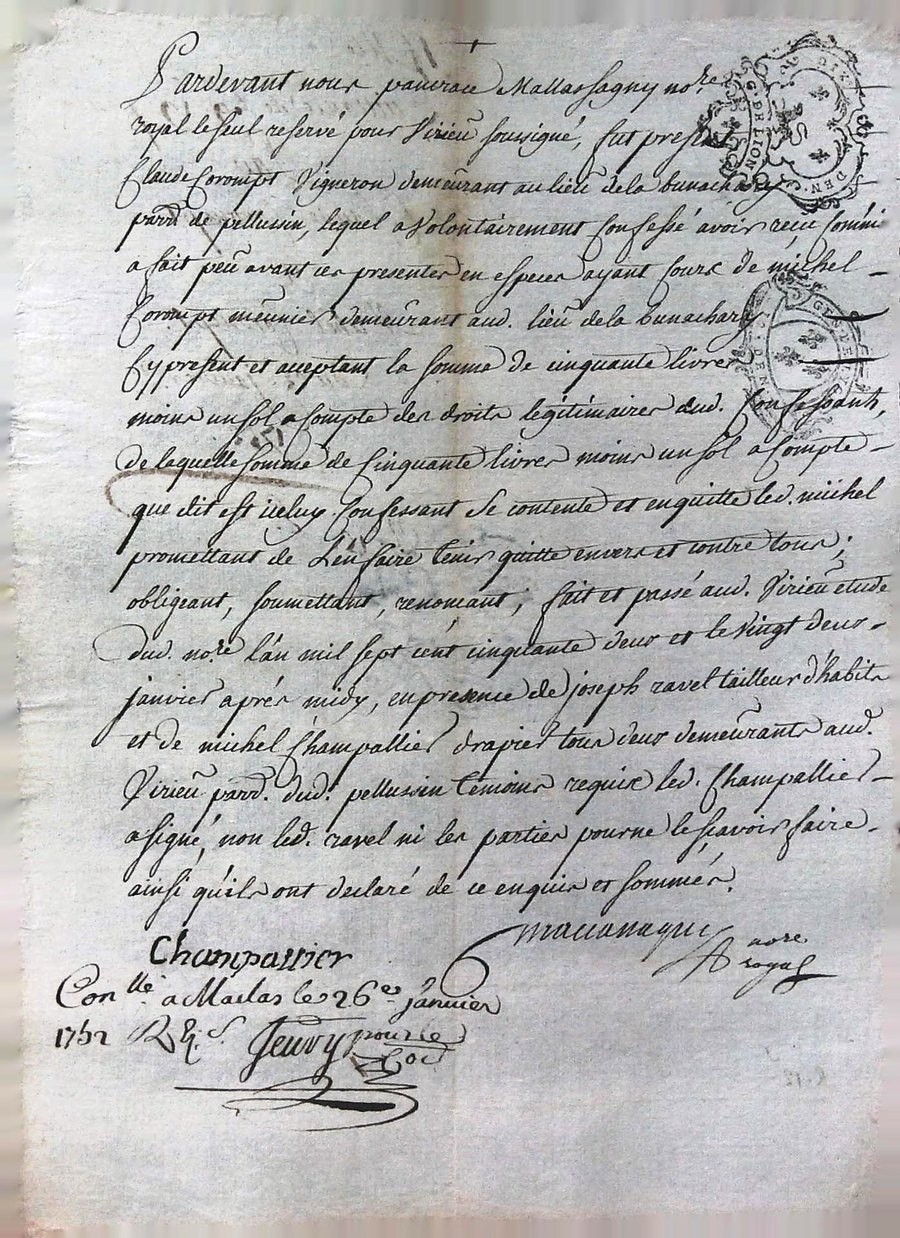 Pardevant nous pancrace Mallassagny no.re
royal le seul reservé pour Virieu soussigné, fut present
Claude Corompt Vigneron demeurant au lieu dela bunachary
parr.d de pellussin, lequel a Volontairement Confessé avoir reçu Comme
a fait peu avant ces presentes en especes ayant Cours de michel -
Corompt meunier demeurant aud. lieu dela bunachary
Cy present et acceptant la somme de cinquante livres
moins un sol a Compte des droits legitimaires dud. Confessant,
de laquelle somme de Cinquante livres moins un sol a Compte -
que dit est iceluy Confessant se contente et en quitte led. michel
promettant de L'en faire tenir quitte envers et contre tous ;
obligeant, soumettant, renonçant ; fait et passé aud. Virieu etude
dud. no.re l'an mil sept cent cinquante deux et le Vingt deux -
janvier aprés midy, en presence de joseph ravel tailleur d'habits
et de michel Champallier drapier tous deux demeurants aud.
Virieu parr.d dud. pellussin temoins requis led. Champallier -
a signé, non led. ravel ni les parties pour ne le sçavoir faire -
ainsi qu'ils ont declaré de ce enquis et sommés.
Champallier
nore
royal
Con.llé a Maclas le 26.e janvier
1752 R
pour le
G. DE LION